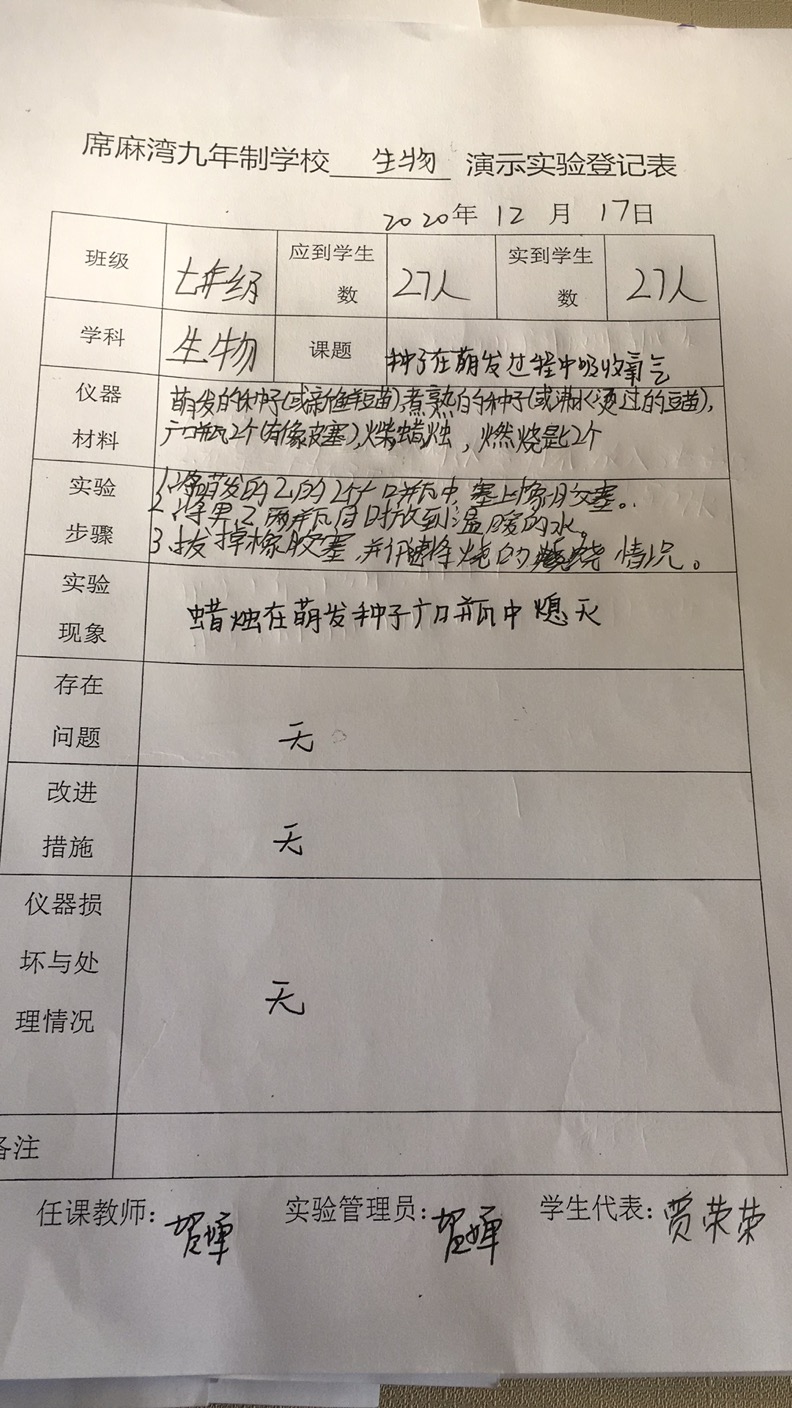 席麻湾九年制学校 生物 演示实验登记表
2020年 12 月 17日
班级 七年级 应到学生数 27人 实到学生数 27人
学科 生物 课题 种子在萌发过程中吸收氧气
仪器材料 萌发的种子(或新鲜豆苗),煮熟的种子(或沸水烫过的豆苗),
广口瓶2个(有像皮塞),蜡烛,燃烧匙2个
实验步骤 1、将萌发的 广口瓶中,塞上橡胶塞。
2、将甲、乙两瓶同时放到温暖的水,
3、拔掉橡胶塞,并 情况。
实验现象 蜡烛在萌发种子广口瓶中熄灭
存在问题 无
改进措施 无
仪器损坏与处理情况 无
备注
任课教师: 实验管理员: 学生代表:贾荣荣